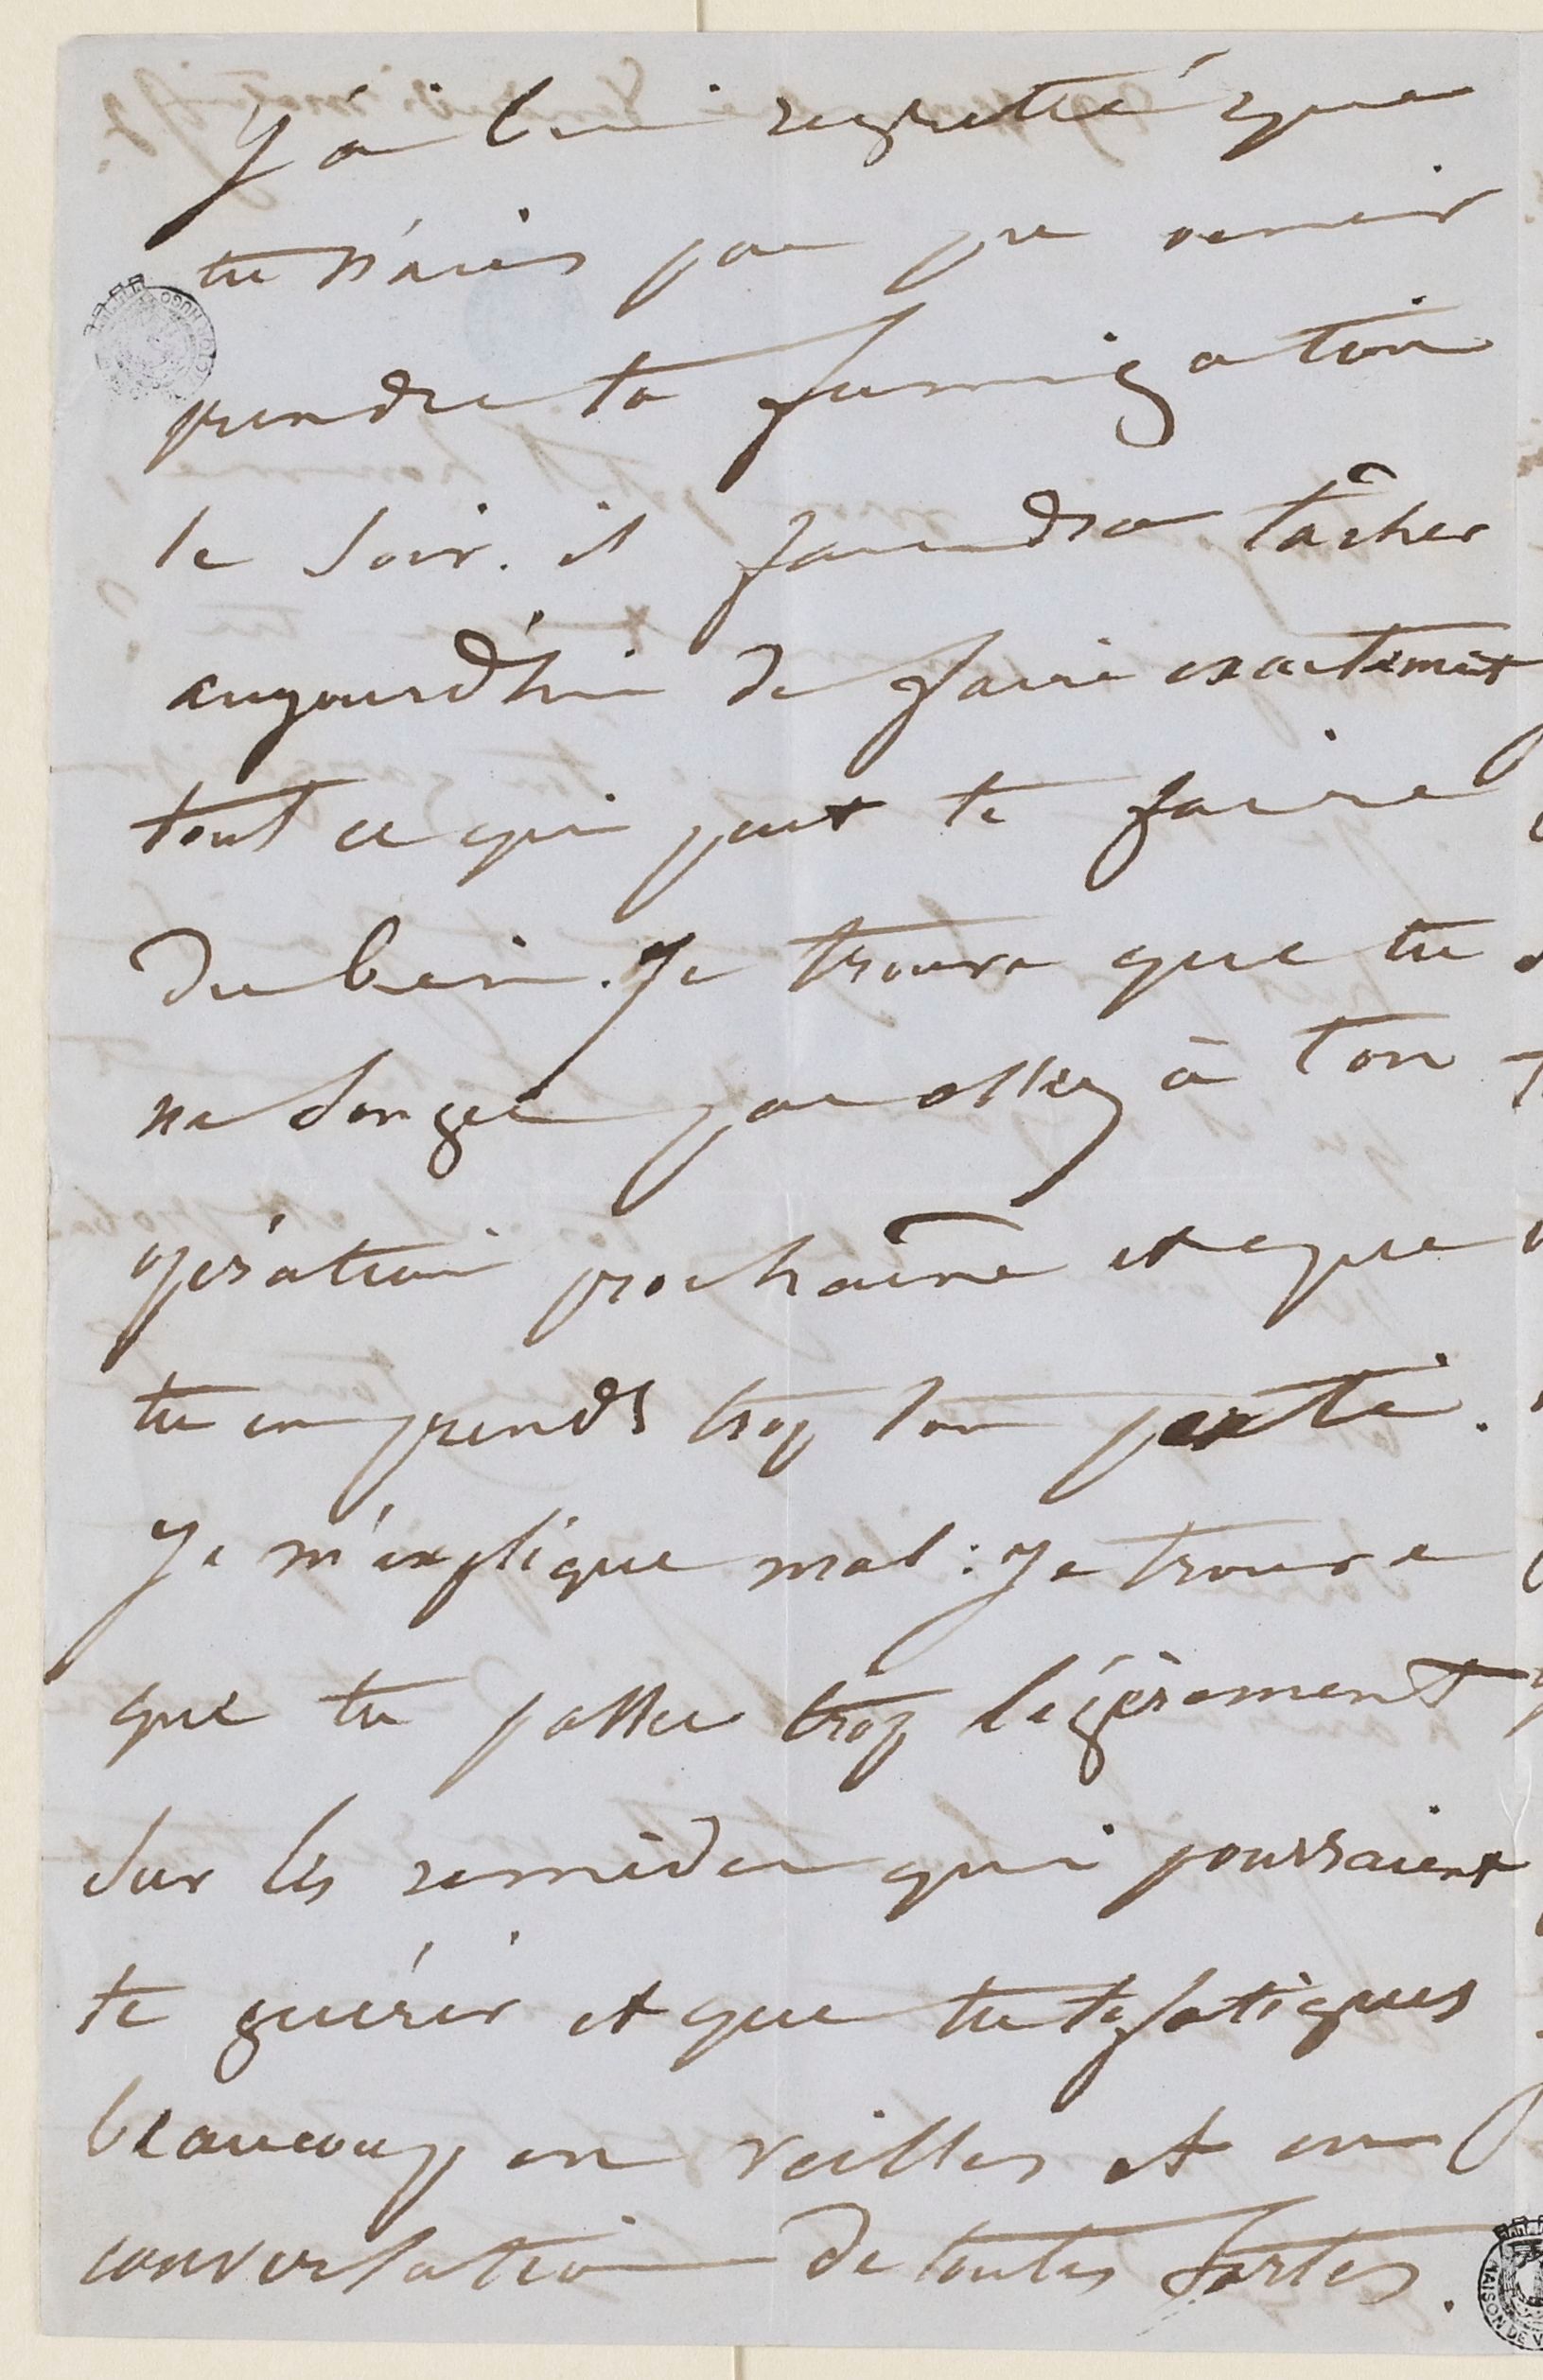 J'ai bien regretté que
tu n'aies pas pu venir
prendre ta fumigation
le soir. il faudra tâcher
aujourd'hui de faire exactement
tout ce qui peut te faire
du bien. Je trouve que tu
ne songes pas assez à ton
opération prochaine et que
tu en prends trop ton parti.
Je m'explique mal : Je trouve
que tu passes trop légèrement
sur les remèdes qui pourraient
te guérir et que tu te fatigues
beaucoup en veilles et en
conversation de toutes sortes.
MAISON DE V